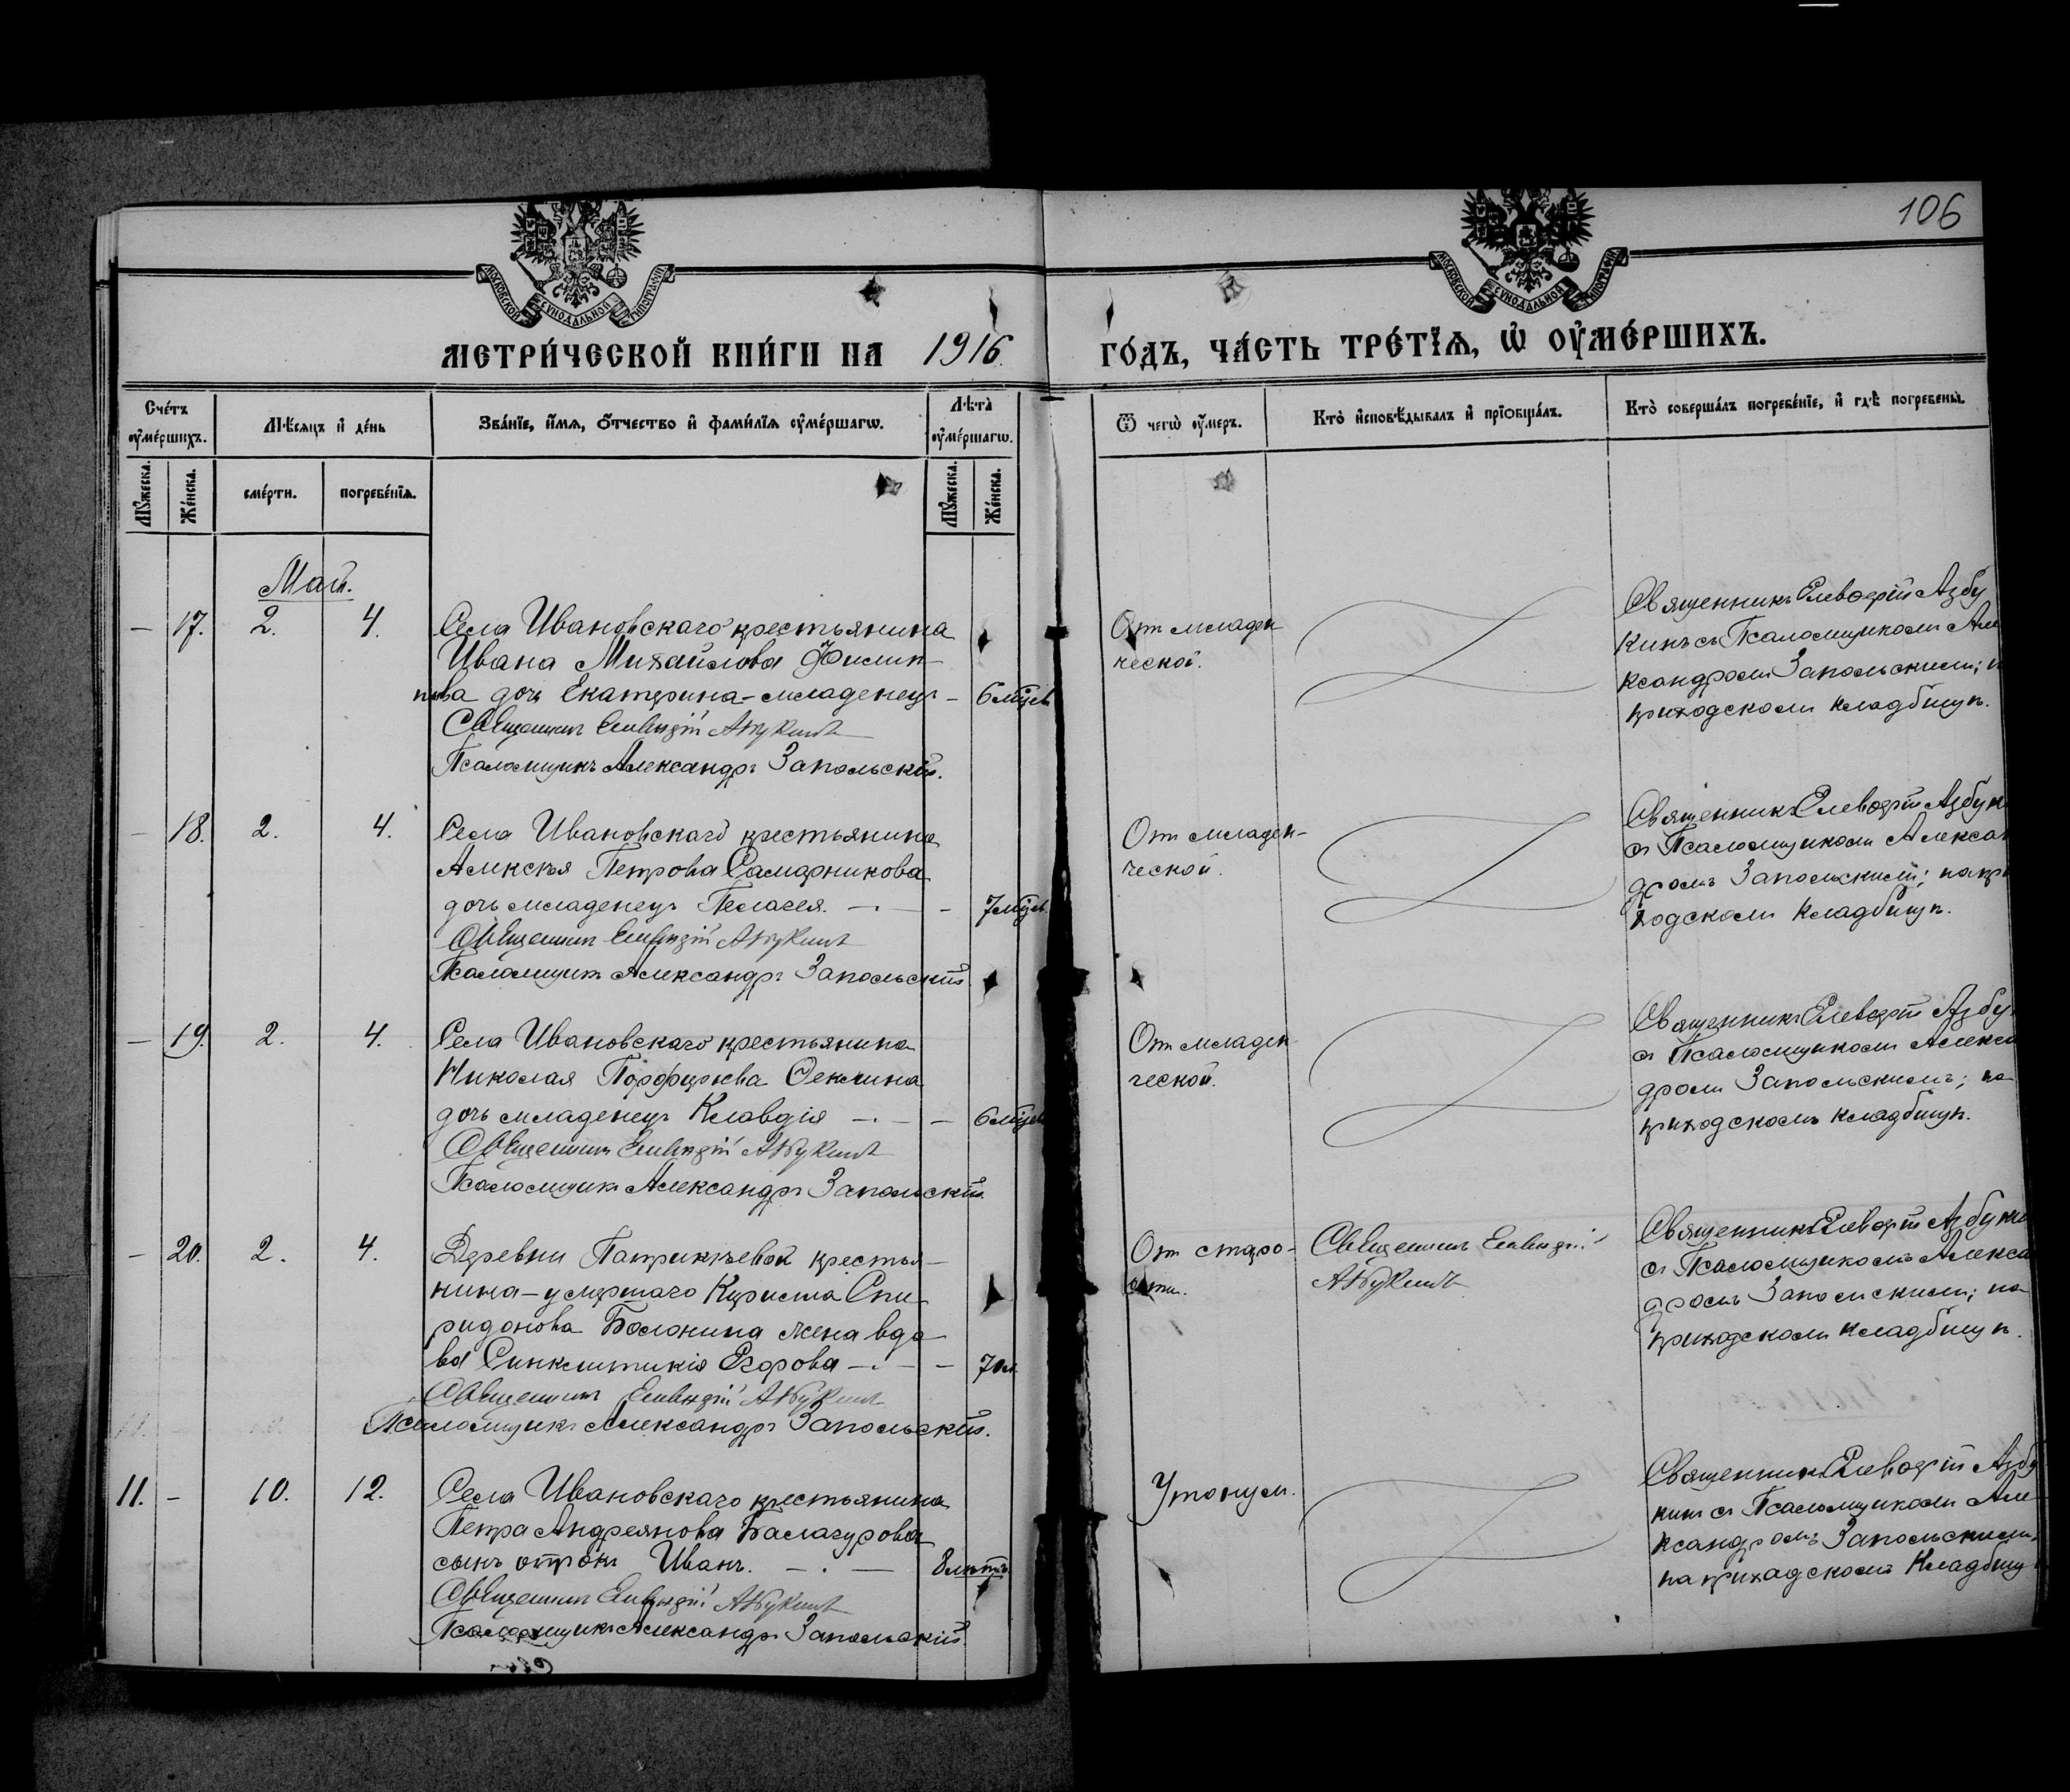 106
МОСКОВСКОЙ СУНОДАЛЬНОЙ ТИПОГРАФІИ
МОСКОВСКОЙ СУНОДАЛЬНОЙ ТИПОГРАФІИ
МЕТРИ́ЧЕСКОЙ КНИ́ГИ НА 1916 ГО́ДЪ, ЧА́СТЬ ТРЕ́ТЇѦ, Ѡ ОУ҆МЕ́РШИХЪ.
Сче́тъ оу҆ме́ршихъ.
Мѣ́сяцъ и҆ де́нь
Зва́нїе, и҆́мѧ, ѻ҆́тчество и҆ фами́лїѧ оу҆ме́ршагѡ.
Лѣ̀та̀ оу҆ме́ршагѡ.
Ѿ чегѡ̀ оу҆́меръ.
Кто̀ и҆сповѣ́дывалъ и҆ прїѻбща́лъ.
Кто̀ соверша́лъ погребе́нїе, и҆ гдѣ̀ погребены̀.
Мꙋ́жеска. Же́нска. сме́рти. погребе́нїѧ. Мꙋ́жеска. Же́нска.
Май.
— 17. 2. 4. Села Ивановскаго крестьянина
Ивана Михайлова Филип-
пова дочь Екатерина-младенецъ — 6 мѣсяц.
Священникъ Елевѳерій Азбукинъ
Псаломщикъ Александръ Запольскій.
От младен
ческой.
Священникъ Елевѳерій Азбу
кинъ съ Псаломщикомъ Але
ксандромъ Запольскимъ; н
приходскомъ кладбищѣ.
— 18. 2. 4. Села Ивановскаго крестьянина
Алексѣя Петрова Самарникова
дочь младенецъ Пелагея. — — 7 мѣсяц.
Священникъ Елевѳерій Азбукинъ
Псаломщикъ Александръ Запольскій
От младен-
ческой.
Священникъ Елевѳерій Азбук
съ Псаломщикомъ Алексан
дромъ Запольскимъ; на при
ходскомъ кладбищѣ.
— 19. 2. 4. Села Ивановскаго крестьянина
Николая Порфирьева
дочь младенецъ Клавдія — — 6 мѣсяц.
Священникъ Елевѳерій Азбукинъ
Псаломщикъ Александръ Запольскій.
От младен-
ческой.
Священникъ Елевѳерій Азбу
съ Псаломщикомъ Алекса
дромъ Запольскимъ; на
приходскомъ кладбищѣ.
— 20. 2. 4. Деревни Патрикѣевой крестья-
нина-умершаго Спи-
ридонова Болонина жена вдо
ва Синклитикія Егорова — — 70 л.
Священникъ Елевѳерій Азбукинъ
Псаломщикъ Александръ Запольскій.
От старо-
сти.
Священникъ Елевѳерій
Азбукинъ
Священникъ Елевѳерій Азбуки
съ Псаломщикомъ Алекса
дромъ Запольскимъ; на
приходскомъ кладбищѣ.
11. — 10. 12. Села Ивановскаго крестьянина
Петра Андреянова Балагурова
сынъ отрокъ Иванъ. — . — 8 лѣтъ
Священникъ Елевѳерій Азбукинъ
Псаломщикъ Александръ Запольскій.
Утонул.
Священникъ Елевѳерій Азбу
кинъ съ Псаломщикомъ Але
ксандромъ Запольскимъ;
на приходскомъ кладбищ